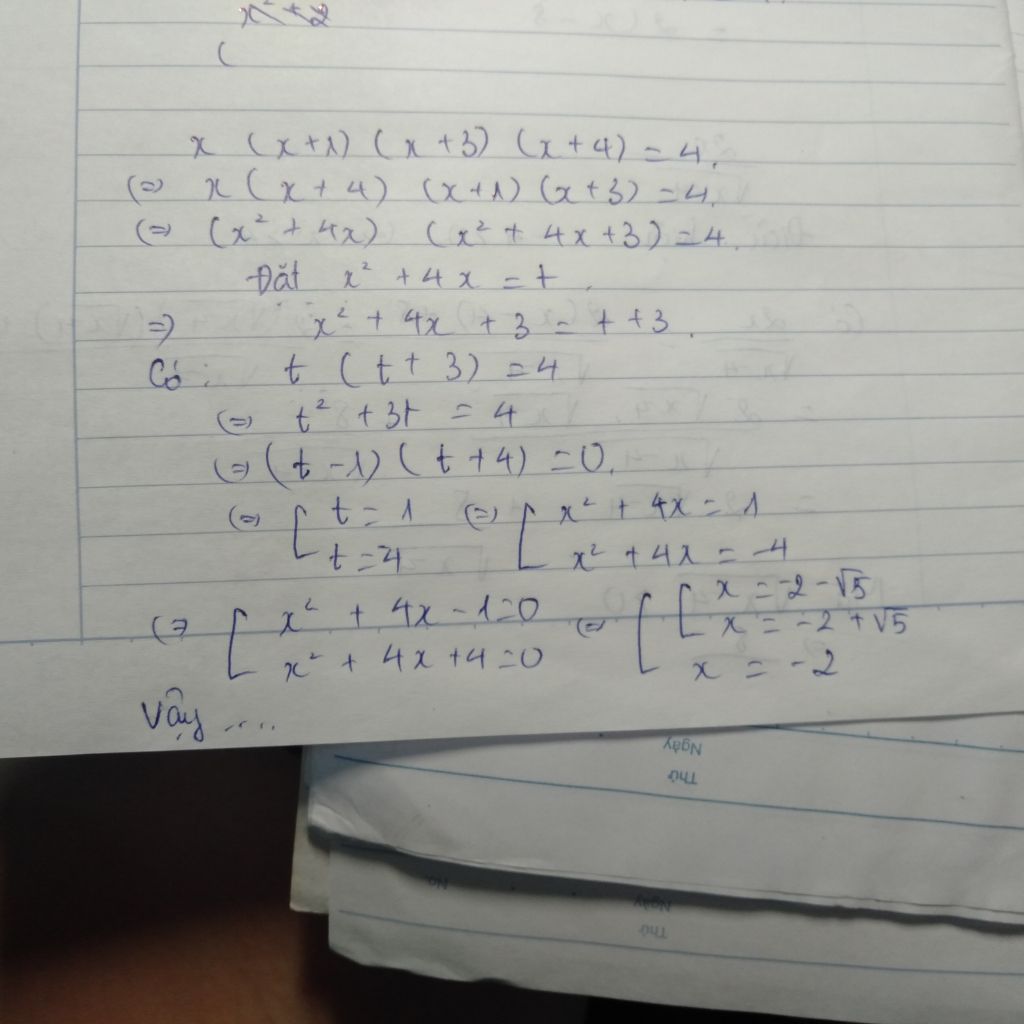 x² + 2
(
x (x+1) (x+3) (x+4) = 4.
(=) x (x+4) (x+1) (x+3) = 4.
(=) (x² + 4x) (x² + 4x + 3) = 4.
Đặt x² + 4x = t.
=) x² + 4x + 3 = t + 3.
Có: t (t + 3) = 4
(=) t² + 3t = 4
(=) (t - 1) (t + 4) = 0.
(=) [ t = 1 (=) [ x² + 4x = 1
t = 4 x² + 4x = -4
(=) [ x² + 4x - 1 = 0 (=) [ [ x = -2 - √5
x = -2 + √5
x² + 4x + 4 = 0 x = -2
Vậy ....
Ngày
Thứ
No.
Ngày
Thứ